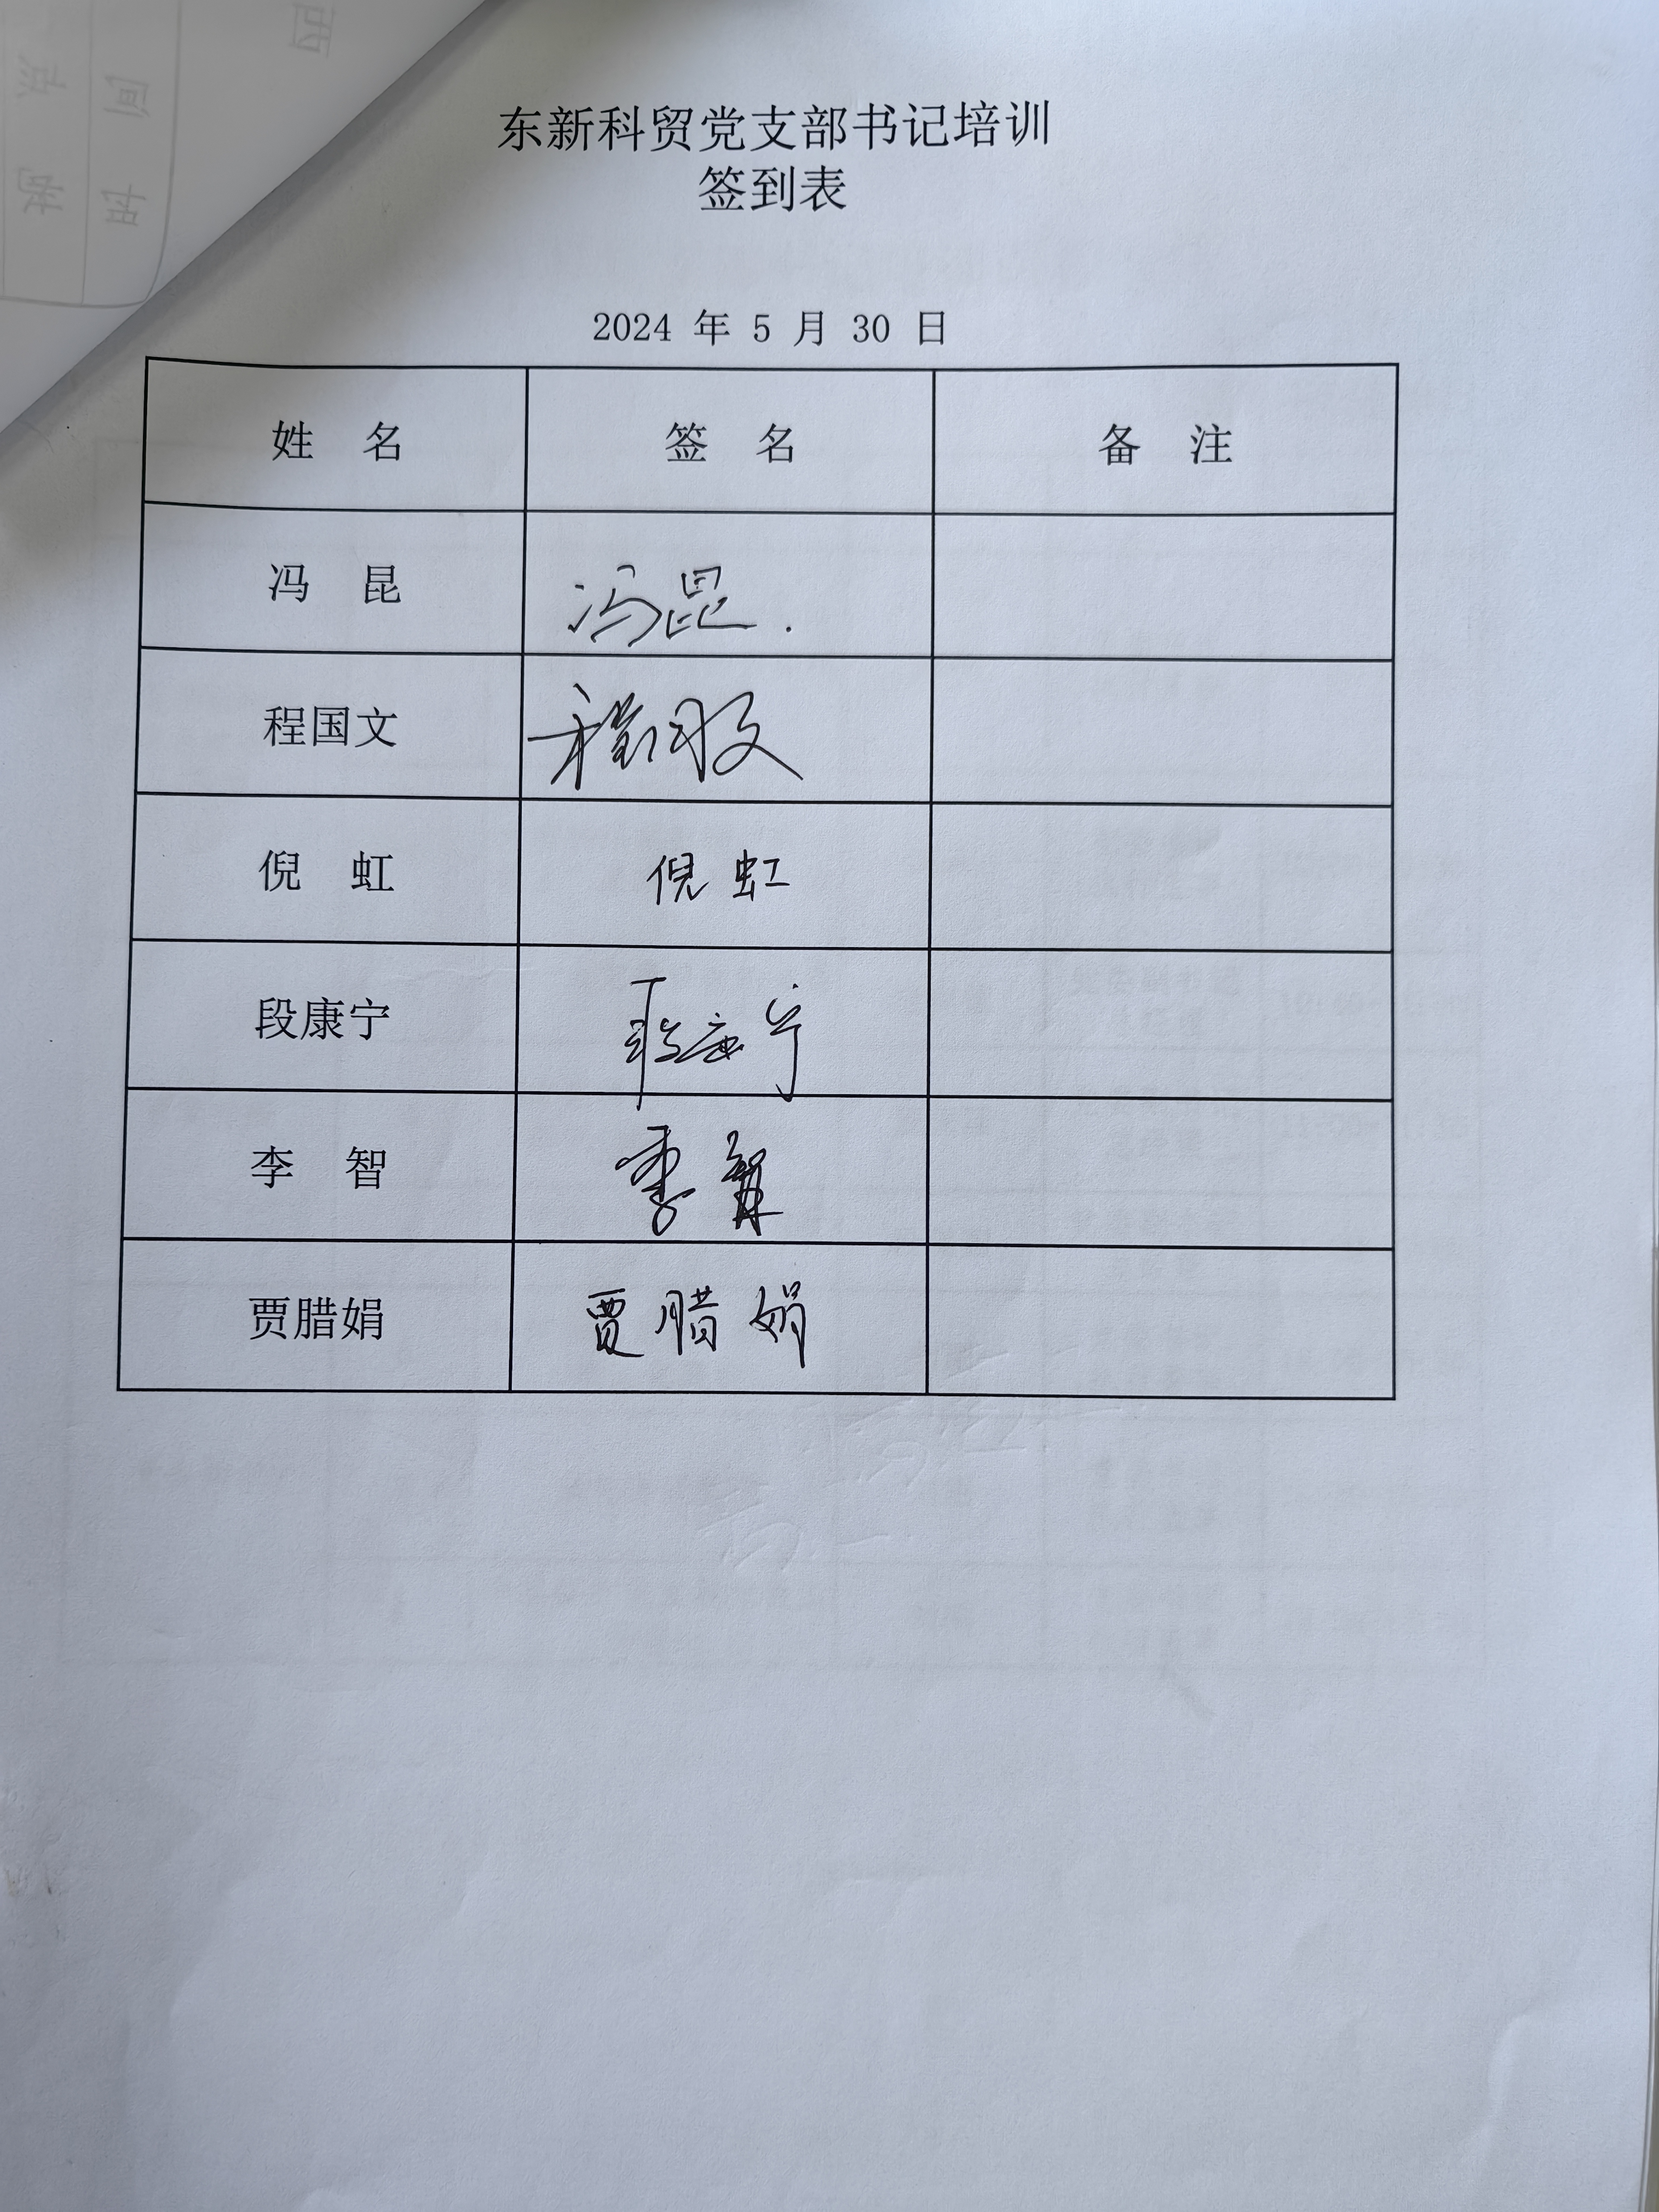 东新科贸党支部书记培训
签到表
2024 年 5 月 30 日
姓 名 签 名 备 注
冯 昆 冯昆.
程国文 程国文
倪 虹 倪虹
段康宁 段康宁
李 智 李智
贾腊娟 贾腊娟